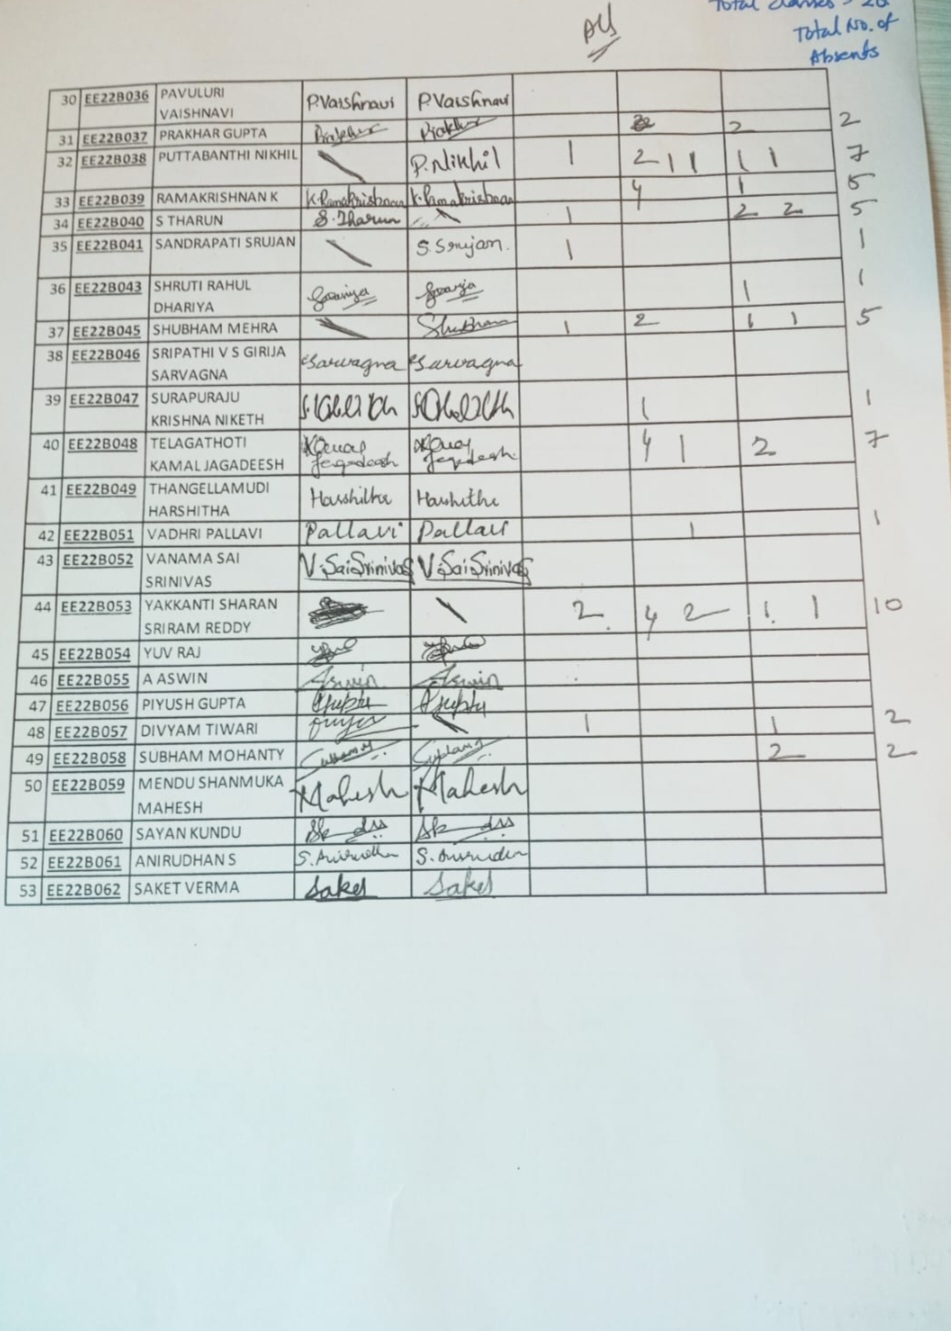 Total No. of
Absents
30 EE22B036 PAVULURI P.Vaishnavi P.Vaishnavi
VAISHNAVI
31 EE22B037 PRAKHAR GUPTA Prakhar Prakhar 2 2
32 EE22B038 PUTTABANTHI NIKHIL P.Nikhil 1 2 1 1 1 1 7
33 EE22B039 RAMAKRISHNAN K K.Ramakrishnan K.Ramakrishnan 4 1 5
34 EE22B040 S THARUN S.Tharun 1 2 2 5
35 EE22B041 SANDRAPATI SRUJAN S.Srujan. 1 1
36 EE22B043 SHRUTI RAHUL 1 1
DHARIYA
37 EE22B045 SHUBHAM MEHRA Shubham 1 2 1 1 5
38 EE22B046 SRIPATHI V S GIRIJA Sarvagna Sarvagna
SARVAGNA
39 EE22B047 SURAPURAJU 1 1
KRISHNA NIKETH
40 EE22B048 TELAGATHOTI Kamal Kamal 4 1 2 7
KAMAL JAGADEESH Jagadeesh Jagadeesh
41 EE22B049 THANGELLAMUDI Harshitha Harshitha
HARSHITHA
42 EE22B051 VADHRI PALLAVI Pallavi Pallavi 1 1
43 EE22B052 VANAMA SAI V.SaiSrinivas V.SaiSrinivas
SRINIVAS
44 EE22B053 YAKKANTI SHARAN 2 4 2 1 1 10
SRIRAM REDDY
45 EE22B054 YUV RAJ
46 EE22B055 A ASWIN Aswin Aswin
47 EE22B056 PIYUSH GUPTA Gupta Gupta
48 EE22B057 DIVYAM TIWARI 1 1 2
49 EE22B058 SUBHAM MOHANTY 2 2
50 EE22B059 MENDU SHANMUKA Mahesh Mahesh
MAHESH
51 EE22B060 SAYAN KUNDU
52 EE22B061 ANIRUDHAN S S.Anirudhan S.Anirudhan
53 EE22B062 SAKET VERMA Saket Saket